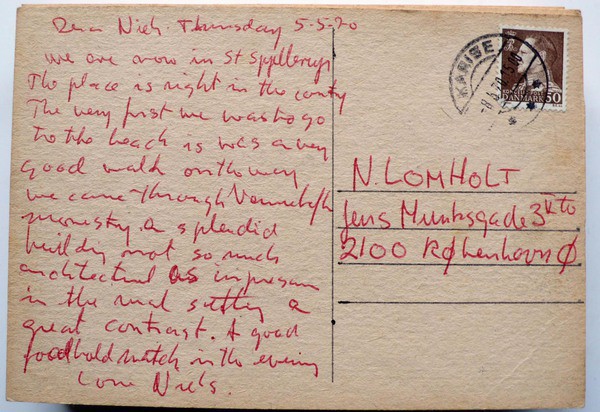 Dear Niels Thursday 5-5-70
we are now in St
The place is right in the country
The very first we was to go
to the beach is was a very
good walk on the way
we came through
a splendid
building not so much
architectural as
in the rural setting a
great contrast. A good
match in the evening
Love Niels.
KARISE
DANMARK 50
N. LOMHOLT
Jens Munksgade 3
2100 København Ø